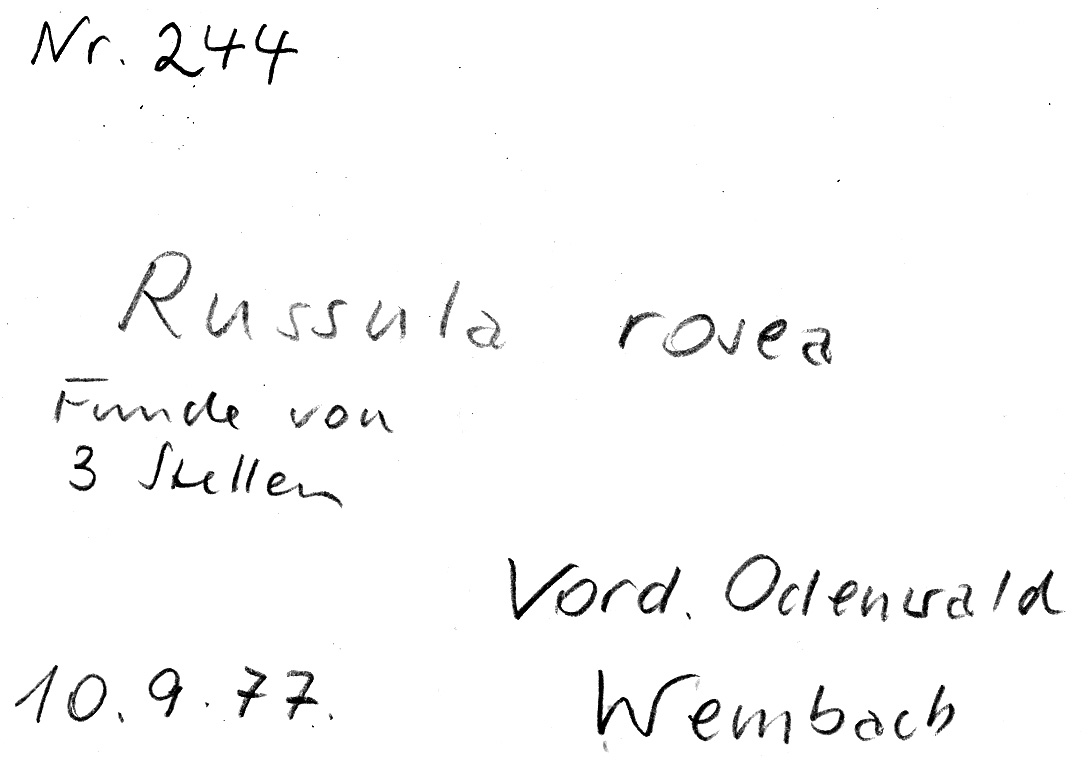 Nr. 244
Russula rosea
Funde von
3 Stellen
Vord. Odenwald
10.9.77.
Wembach